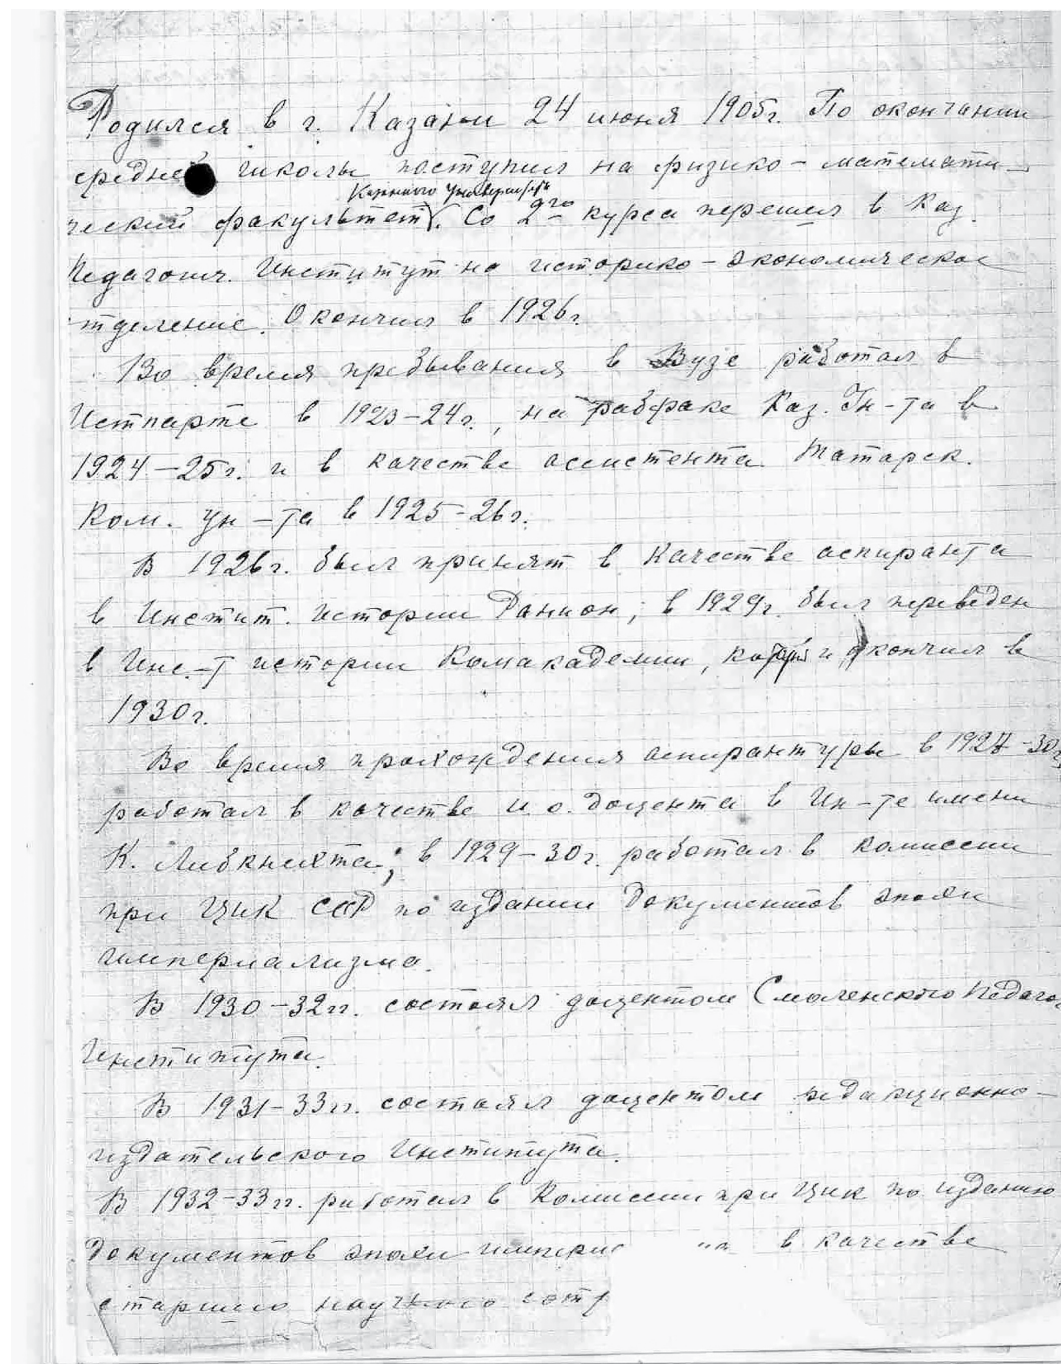 Родился в г. Казани 24 июня 1905г. По окончании
средней школы поступил на физико-математи-
Казанского Университета
ческий факультет. Со 2го курса перешел в Каз.
Педагогич. Институт на историко-экономическое
отделение. Окончил в 1926г.
Во время пребывания в Вузе работал в
Истпарте в 1923-24г., на рабфаке Каз. Ин-та в
1924-25г. и в качестве ассистента Татарск.
Ком. Ун-та в 1925-26г.
В 1926г. был принят в качестве аспиранта
в Инстит. истории Ранион; в 1929г. был переведен
в Инс-т истории Комакадемии, который и окончил в
1930г.
Во время прохождения аспирантуры в -30г
работал в качестве и.о. доцента в Ин-те имени
К. Либкнехта; в 1929-30г. работал в Комиссии
при ЦИК СССР по издании документов эпохи
империализма.
В 1930-32гг. состоял доцентом Смоленского Педагог
Института.
В 1931-33гг. состоял доцентом редакционно-
издательского Института.
В 1932-33гг. работал в Комиссии при ЦИК по изданию
документов эпохи импери в качестве
старшего научного сотр